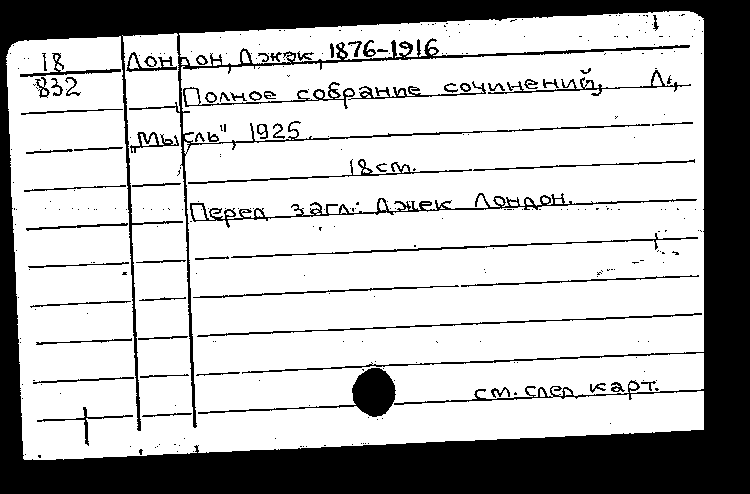 18 Лондон, Джек, 1876-1916
832
Полное собрание сочинений, Л.,
„Мысль", 1925.
18 cm.
Перед загл.: Джек Лондон.
см. след. карт.